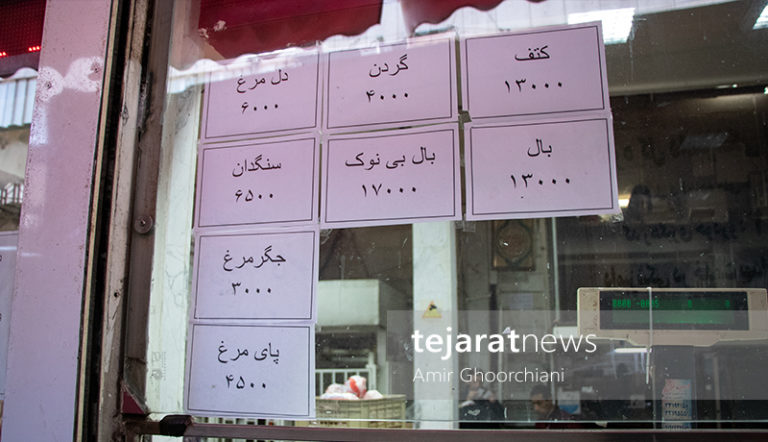 کتف
۱۳۰۰۰
گردن
۴۰۰۰
دل مرغ
۶۰۰۰
بال
۱۳۰۰۰
بال بی نوک
۱۷۰۰۰
سنگدان
۶۵۰۰
جگرمرغ
۳۰۰۰
پای مرغ
۴۵۰۰
tejaratnews
Amir Ghoorchiani